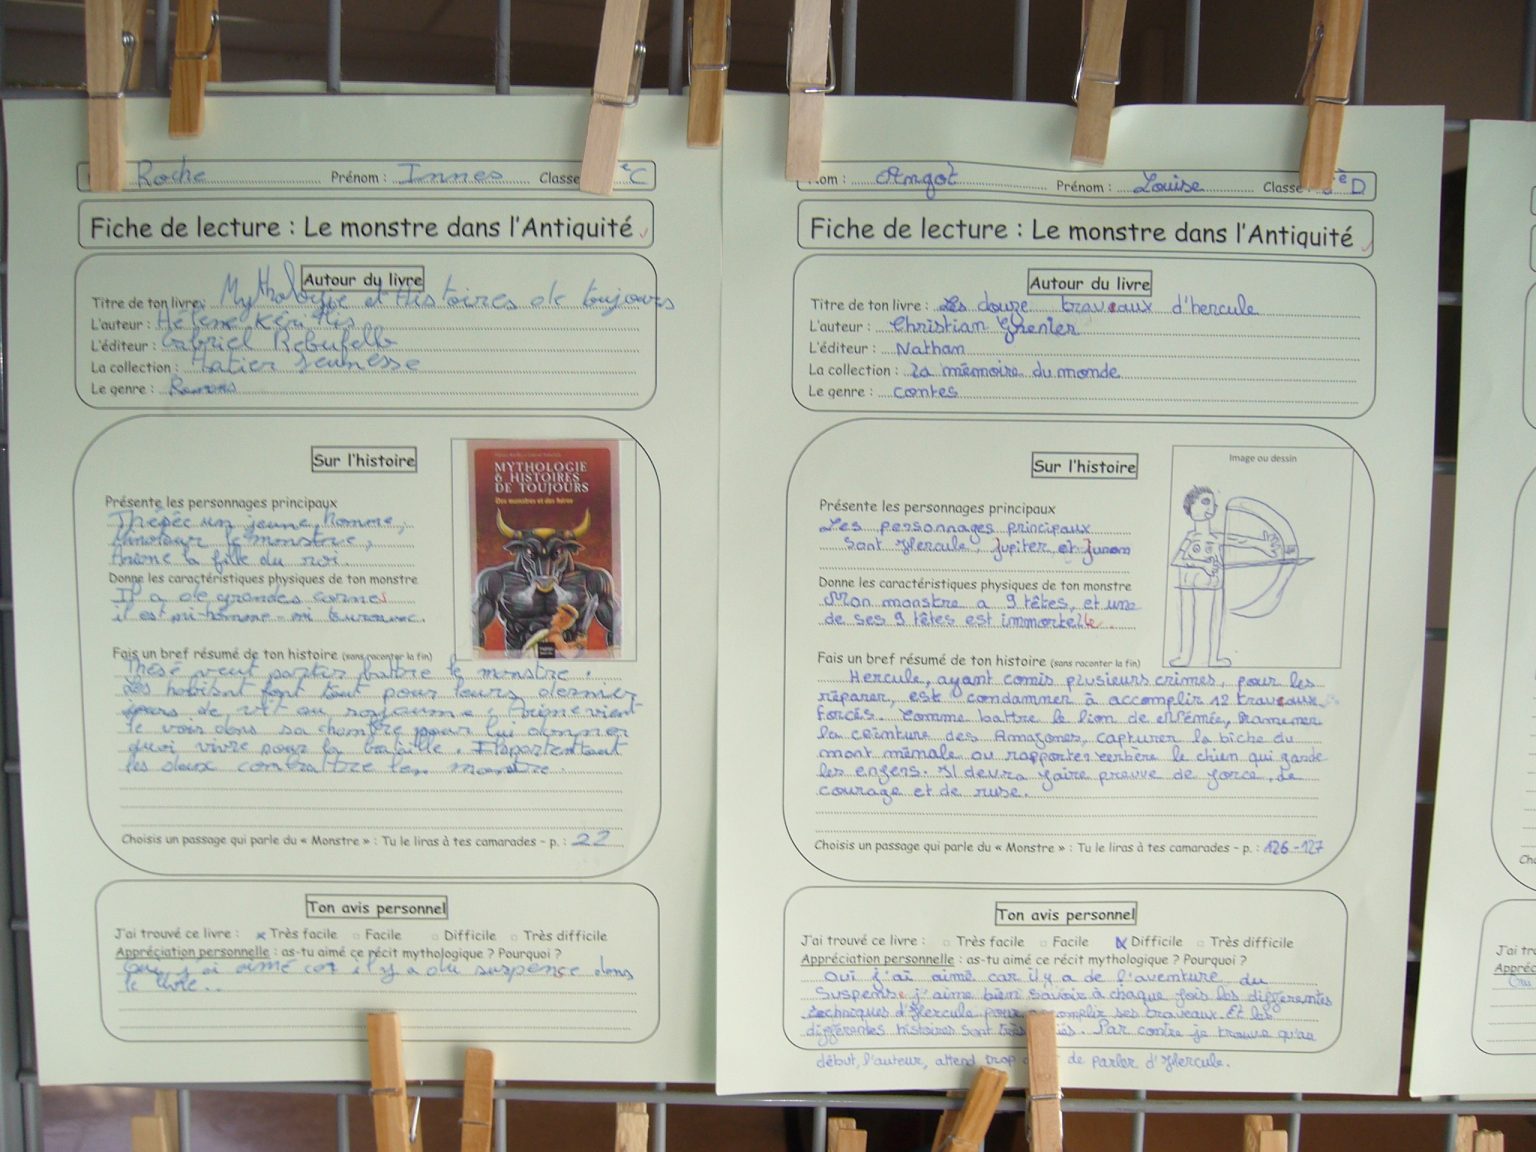 Roche Prénom : Innes Classe èC
Fiche de lecture : Le monstre dans l'Antiquité
Autour du livre
Titre de ton livre : Mythologie et Histoires de toujours
L'auteur : Hélène Kérillis
L'éditeur : Gabriel Rebufello
La collection : Hatier Jeunesse
Le genre : Romans
Sur l'histoire
MYTHOLOGIE
& HISTOIRES
DE TOUJOURS
Des monstres et des héros
Présente les personnages principaux
un jeune homme,
le monstre,
la fille du roi.
Donne les caractéristiques physiques de ton monstre
Il a de grandes cornes
il est mi-homme - mi
Fais un bref résumé de ton histoire (sans raconter la fin)
Thésé veut partir battre le monstre.
Les font tout pour leurs dernier
jours de au vient
le voir dans sa chambre pour lui donner
quoi vivre pour la bataille.
les deux le monstre.
Choisis un passage qui parle du « Monstre » : Tu le liras à tes camarades - p. : 22
Ton avis personnel
J'ai trouvé ce livre : x Très facile Facile Difficile Très difficile
Appréciation personnelle : as-tu aimé ce récit mythologique ? Pourquoi ?
Oui, j'ai aimé car il y a du suspense dans
le livre..
Nom : Angot Prénom : Louise Classe èD
Fiche de lecture : Le monstre dans l'Antiquité
Autour du livre
Titre de ton livre : Les douze traveaux d'hercule
L'auteur : Christian Grenier
L'éditeur : Nathan
La collection : La mémoire du monde
Le genre : contes
Sur l'histoire
Image ou dessin
Présente les personnages principaux
Les personnages principaux
sont Hercule, Jupiter et Junon
Donne les caractéristiques physiques de ton monstre
Mon monstre a 9 têtes, et une
de ses 9 têtes est immortelle.
Fais un bref résumé de ton histoire (sans raconter la fin)
Hercule, ayant comis plusieurs crimes, pour les
réparer, est condamner à accomplir 12 traveaux
forcés. Comme battre le lion de Ramener
la ceinture des Amazones, capturer la biche du
mont ménale ou rapporter cerbère le chien qui garde
les enfers. Il devra faire preuve de force, de
courage et de ruse.
Choisis un passage qui parle du « Monstre » : Tu le liras à tes camarades - p. : 126-127
Ton avis personnel
J'ai trouvé ce livre : Très facile Facile x Difficile Très difficile
Appréciation personnelle : as-tu aimé ce récit mythologique ? Pourquoi ?
Oui j'ai aimé car il y a de l'aventure du
suspense j'aime bien savoir à chaque fois les différentes
techniques d'Hercule pour accomplir ses traveaux. Et les
différentes histoires sont Par contre je trouve qu'au
début, l'auteur, attend trop de parler d'Hercule.